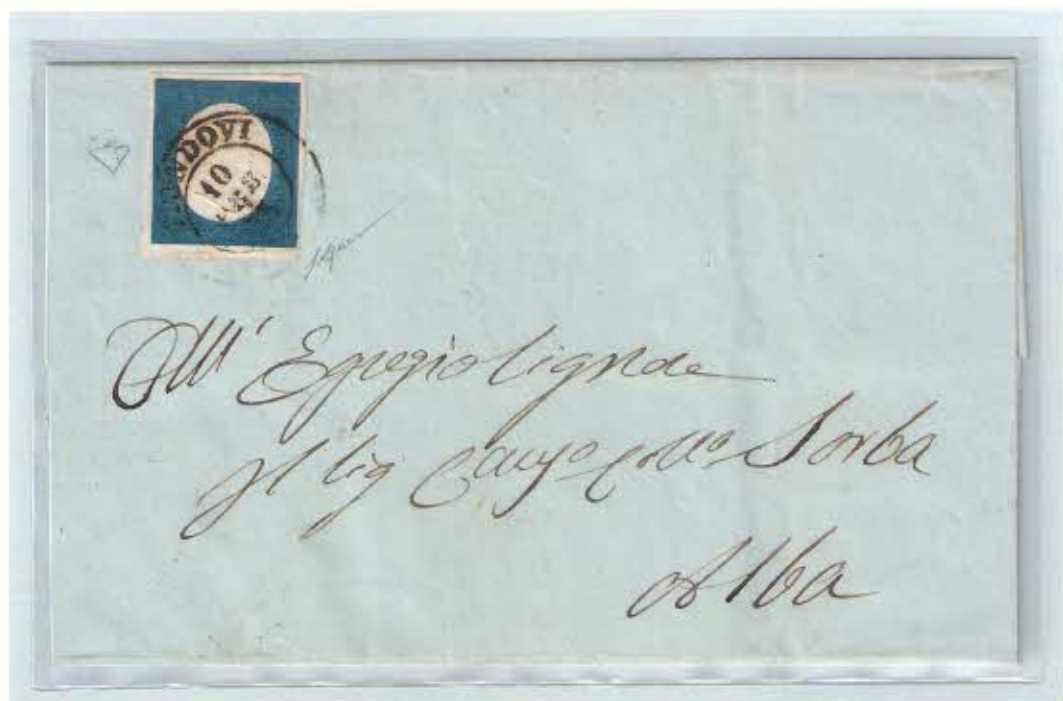 MONDOVI
10
All' Egregio Signore
Il Sig Caus.o Coll.o Sorba
Alba